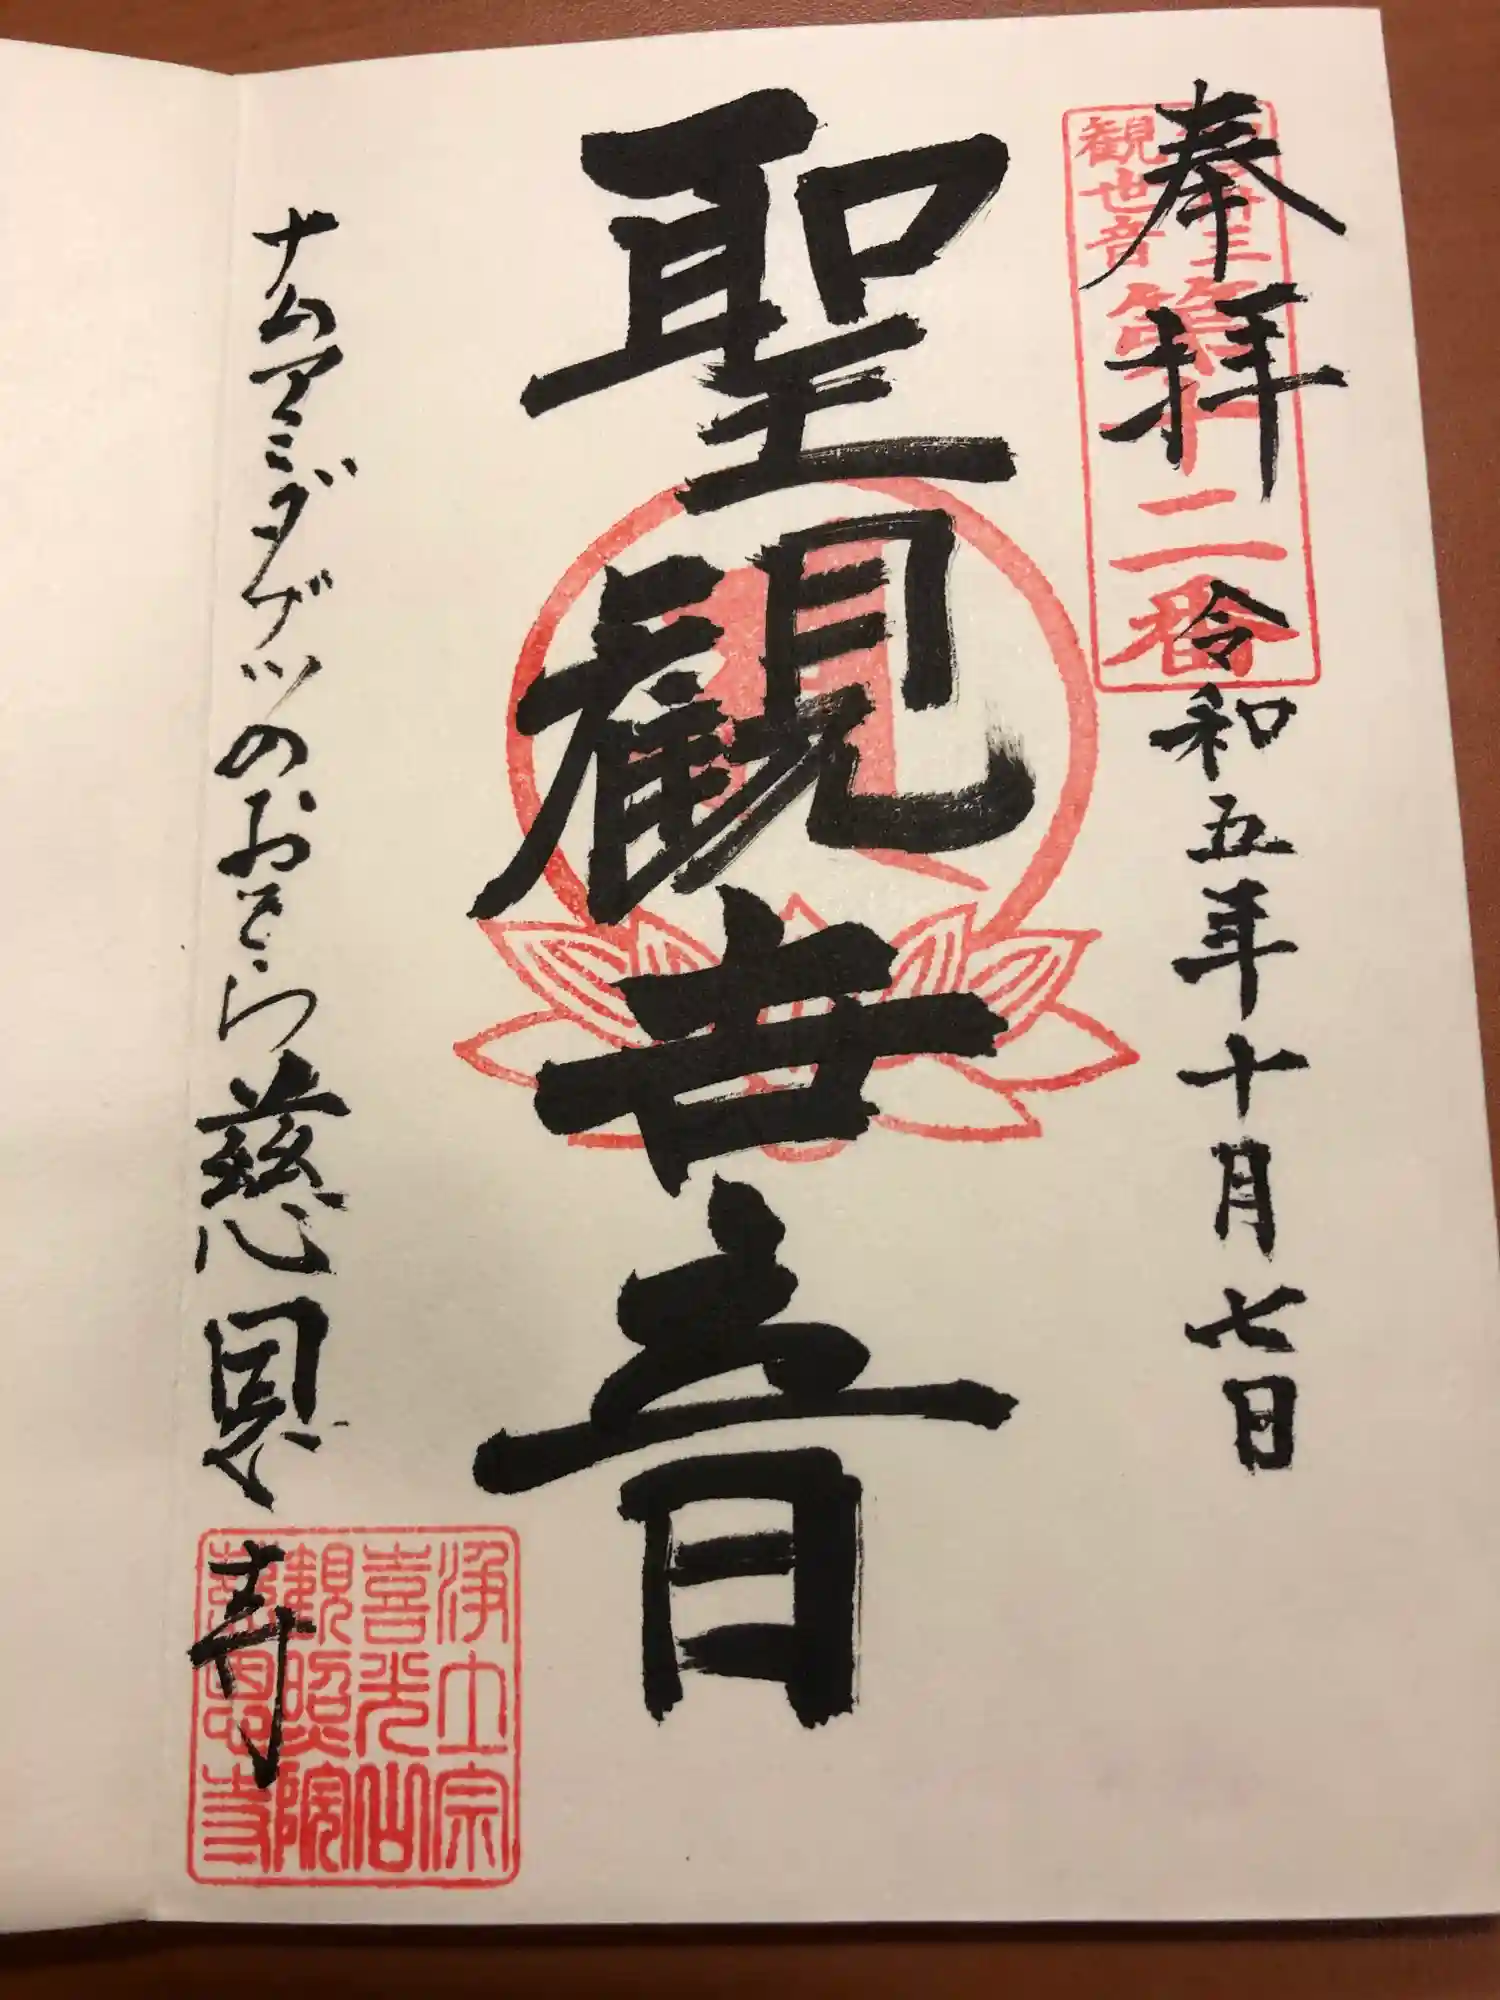 奉拝
令和五年十月七日
観世音
第十二番
聖観世音
ナムアミダブツのおてら
慈恩寺
浄土宗
喜光山
観照院
慈恩寺